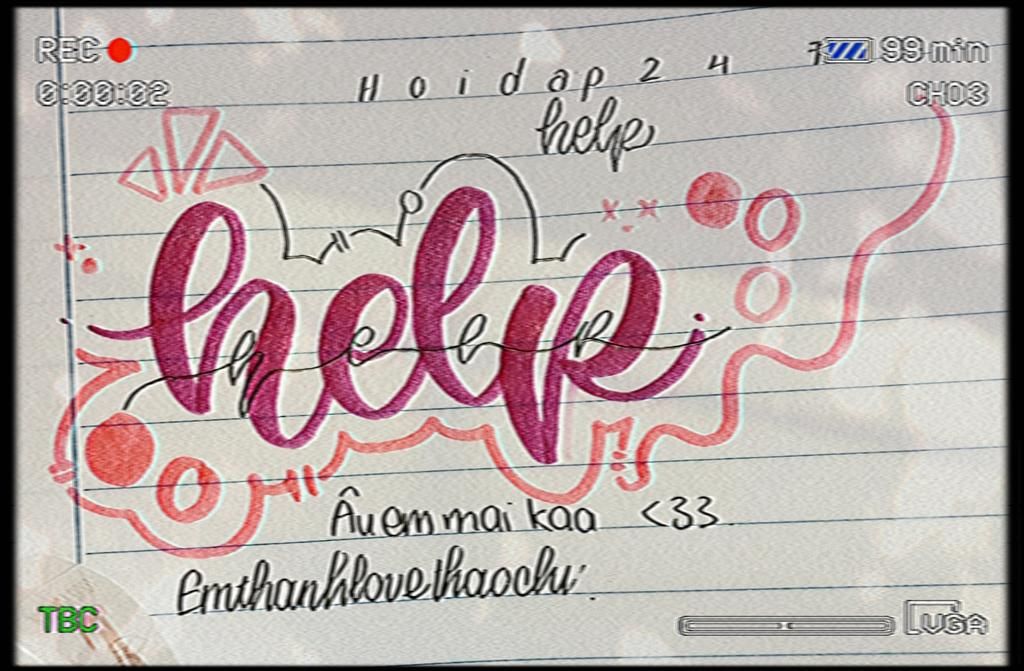 REC 99 min
0:00:02 CH03
Hoidap247
help
help
help
Âu em mai kaa <33
Emthanhlovethaochu.
TBC VGA